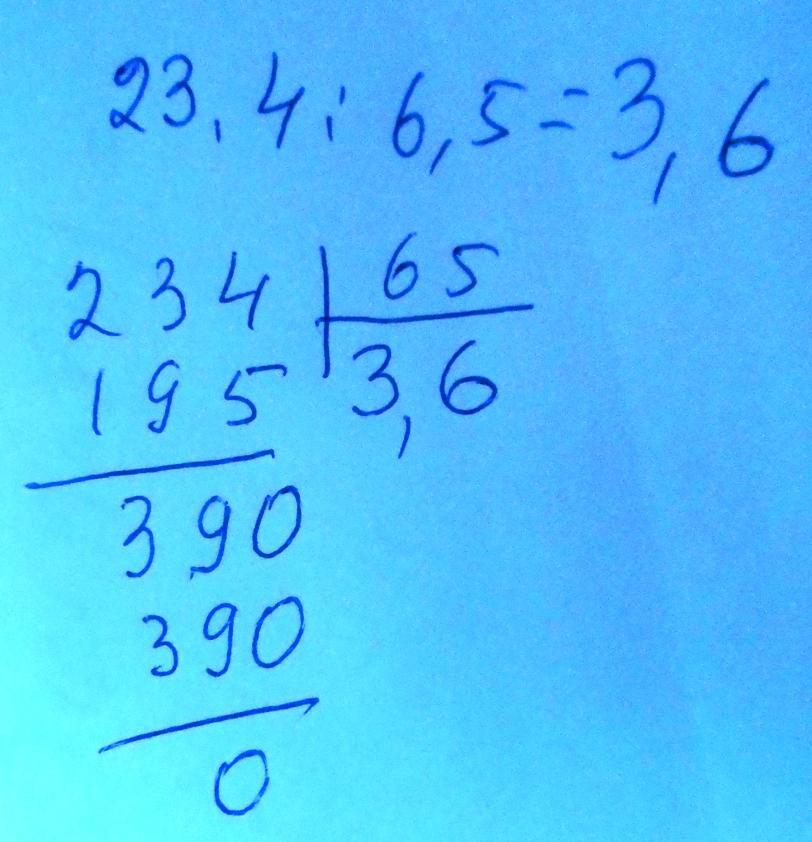 23,4 : 6,5 = 3,6
234 | 65
195 | 3,6
390
390
0